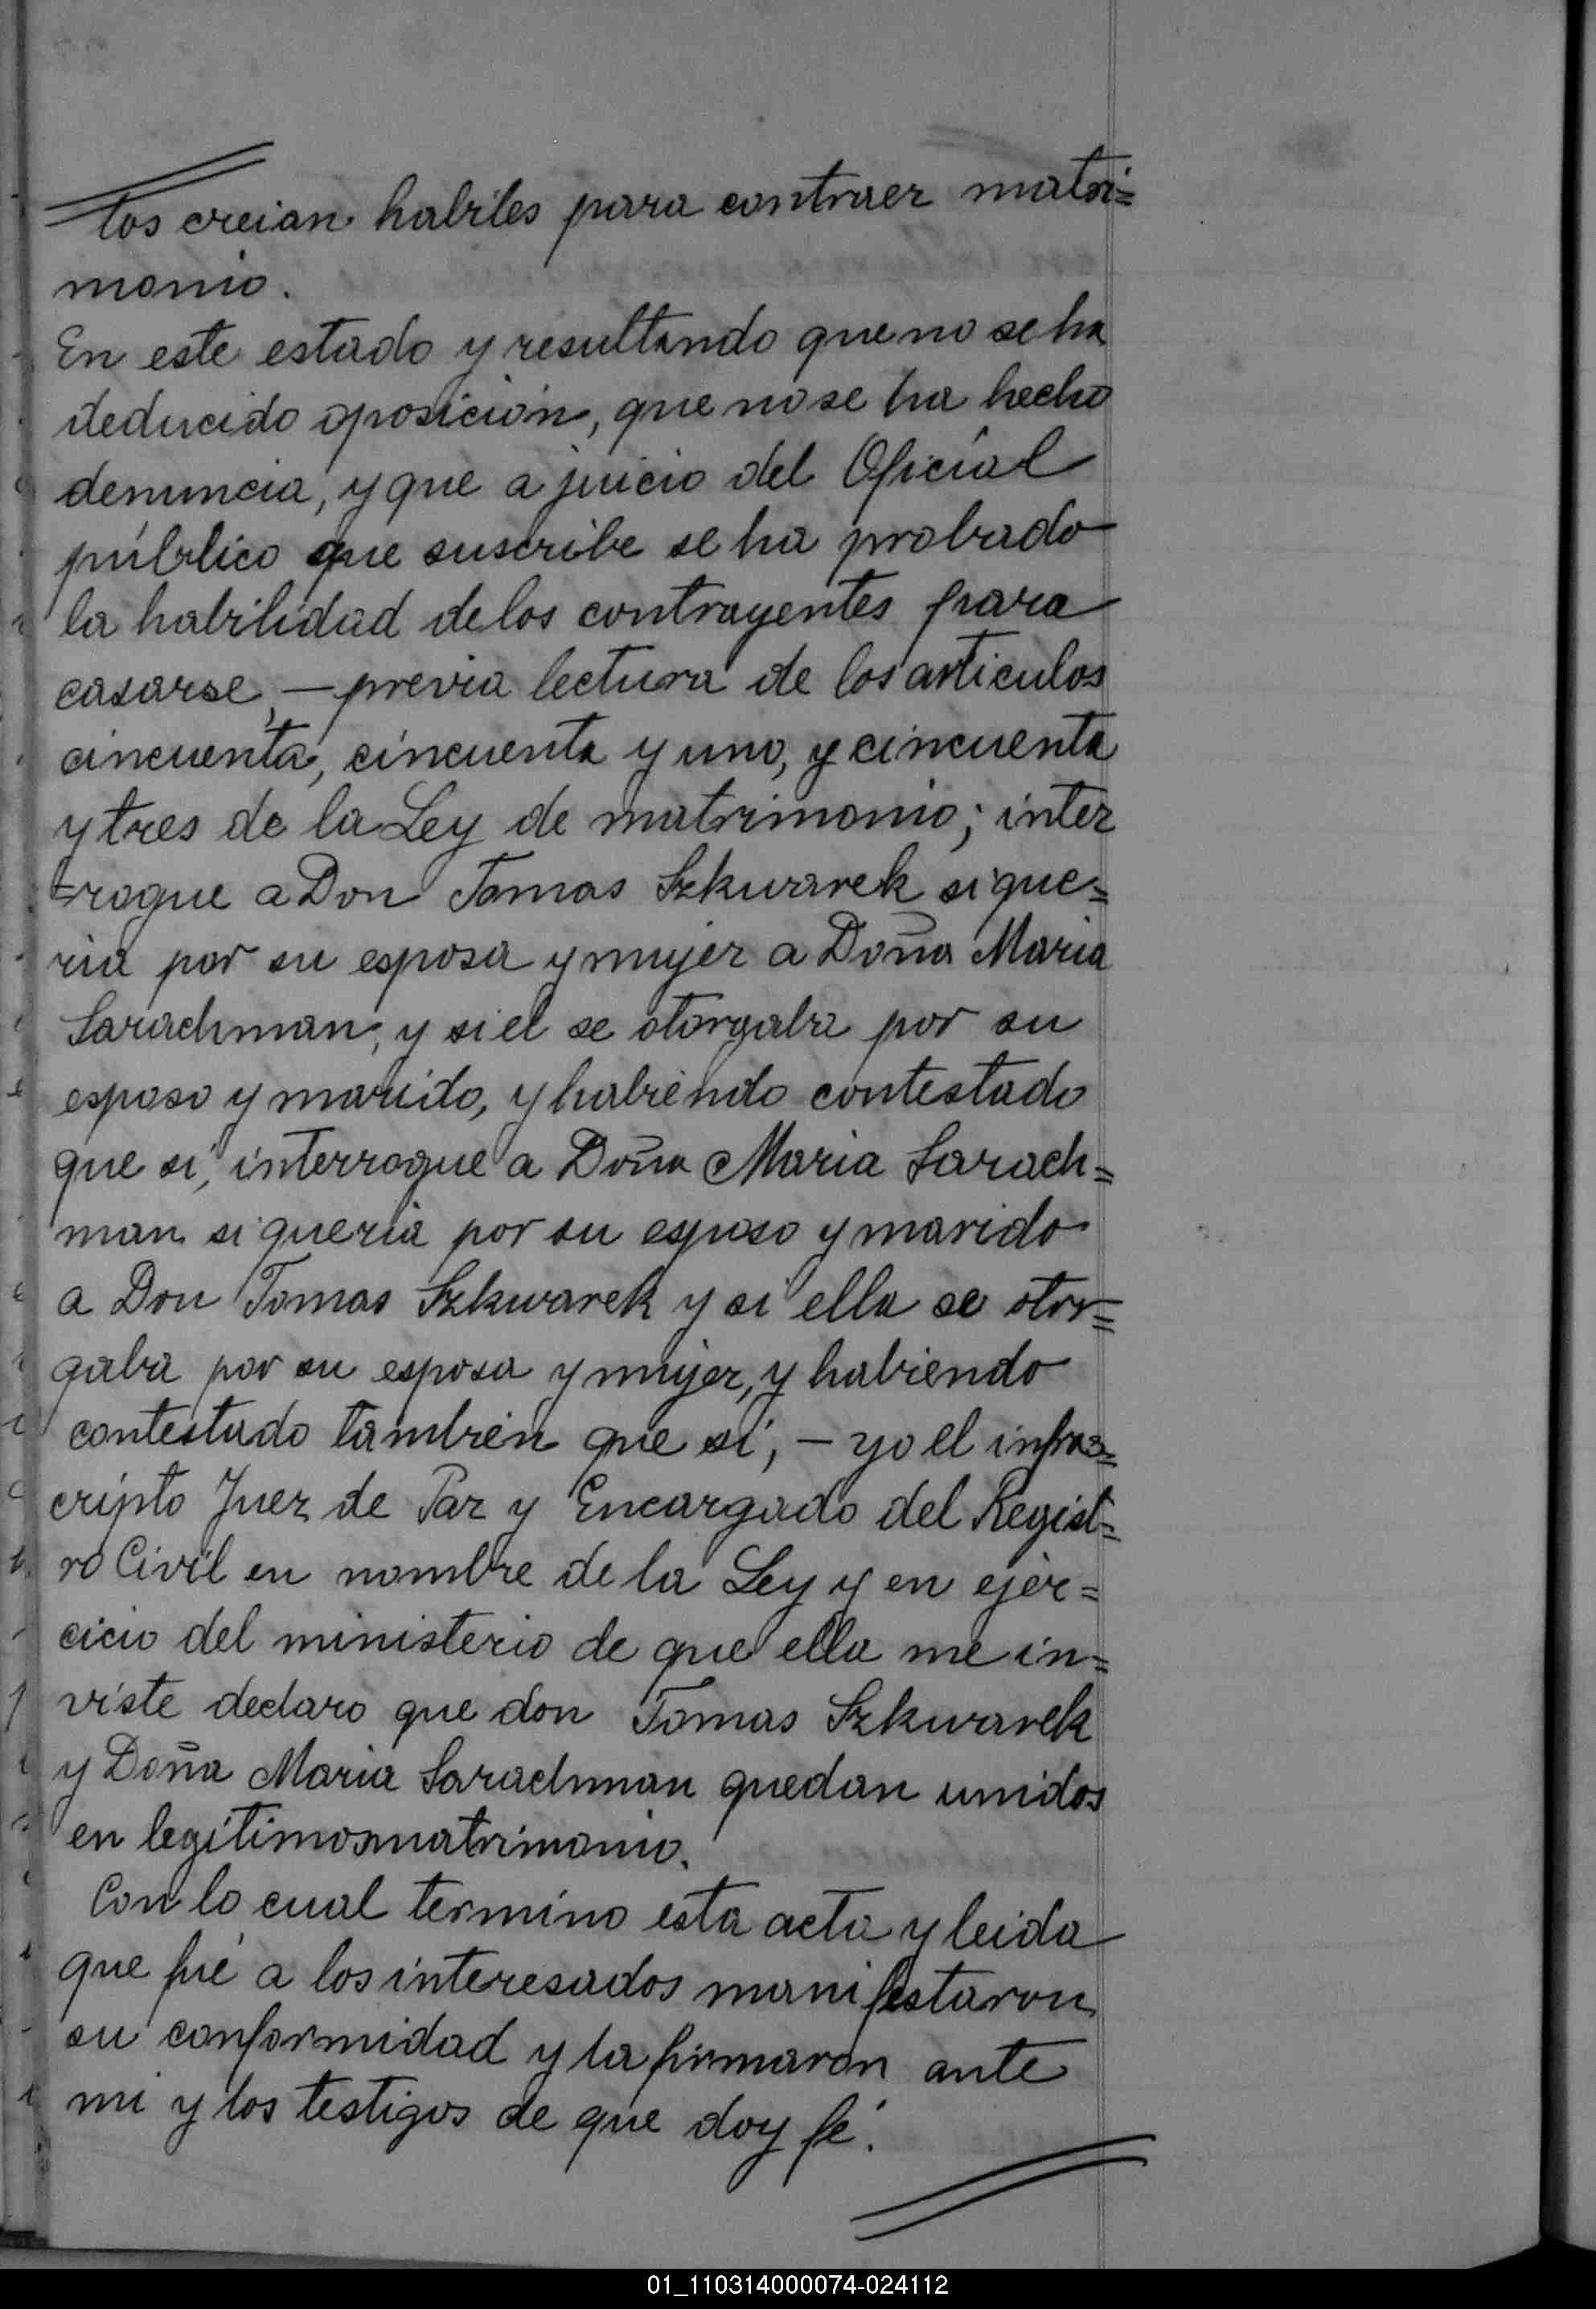 los creian habiles para contraer matri=
monio.
En este estado y resultando que no se ha
deducido oposición, que no se ha hecho
denuncia, y que a juicio del Oficial
público que suscribe se ha probado
la habilidad de los contrayentes para
casarse, — previa lectura de los articulos
cincuenta, cincuenta y uno, y cincuenta
y tres de la Ley de matrimonio; inter
=rogue a Don Tomas Szkwarek si que=
ria por su esposa y mujer a Doña Maria
Sarachman, y si el se otorgaba por su
esposo y marido, y habiendo contestado
que si, interrogue a Doña Maria Sarach=
man si queria por su esposo y marido
a Don Tomas Szkwarek y si ella se otor=
gaba por su esposa y mujer, y habiendo
contestado también que sí, — yo el infras=
cripto Juez de Paz y Encargado del Regist=
ro Civil en nombre de la Ley y en ejer=
cicio del ministerio de que ella me in=
viste declaro que don Tomas Szkwarek
y Doña Maria Sarachman quedan unidos
en legítimo matrimonio.
Con lo cual termino esta acta y leida
que fué a los interesados manifestaron
su conformidad y la firmaron ante
mi y los testigos de que doy fé.
01_110314000074-024112